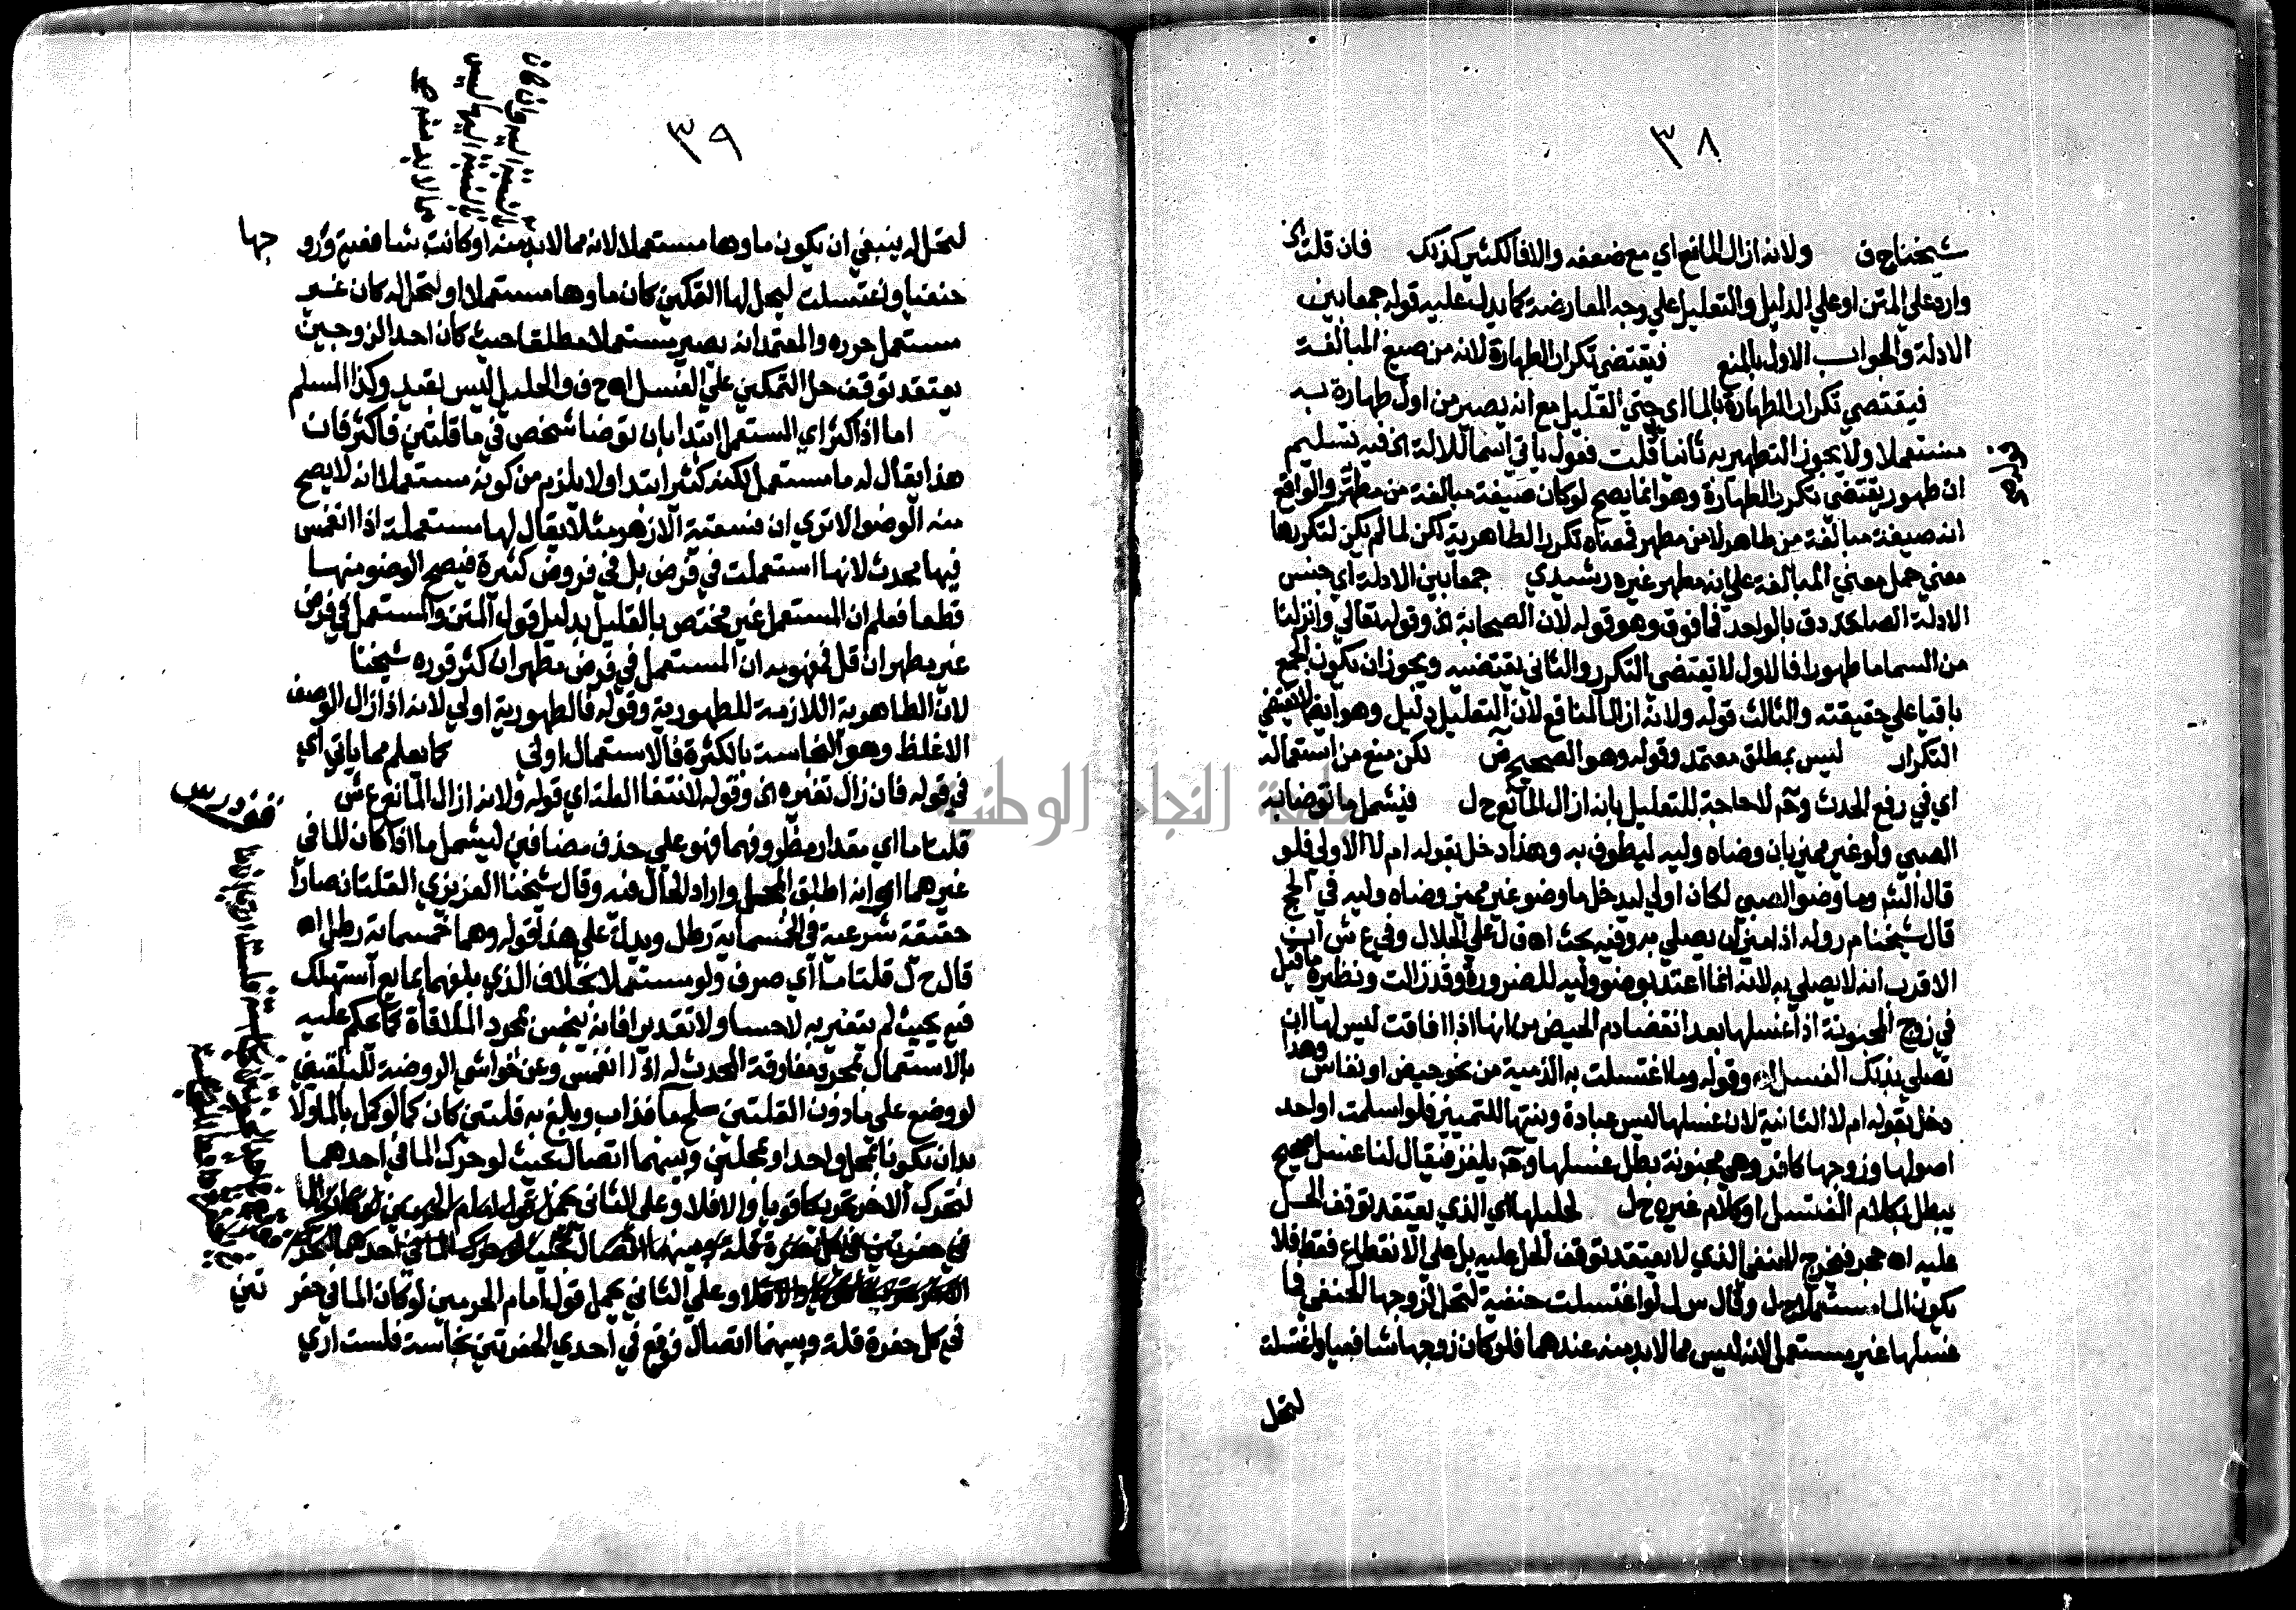 ٣٨
شيخناج ف ولانه ازال المانع اي مع ضعفه والا فالكثير كذلك فان قلت اي
وارد علي المتن او علي الدليل والتعليل علي وجه المعارضة كما يدل عليه قوله جمعا بين
الادلة والجواب الاول بالمنع فيقتضي تكرار الطهارة لانه من صيغ المبالغة
فيقتضي تكرار الطهارة بالما اي حتي القليل مع انه يصير من اول طهارة به
مستعملا ولا يجوز التطهير به ثانيا قلت فعول ياتي اسما للالة الخ فيه تسليم
ان طهور يقتضي تكرر الطهارة وهو انما يصح لو كان صيغة مبالغة من مطهر والواقع
انه صيغة مبالغة من طاهر لا من مطهر فمعناه تكرر الطاهرية لكن لما لم يكن لتكررها
معني حمل معني المبالغة علي انه مطهر غيره رشيدي جمعا بين الادلة اي جنس
الادلة الصادق بالواحد فما فوق وهو قوله لان الصحابة الخ وقوله تعالي وانزلنا
من السما ما طهورا فالاول لا تقتضي التكرر والثاني يقتضيه ويجوز ان يكون الجمع
باقيا علي حقيقته والثالث قوله ولانه ازال المانع لان التعليل دليل وهو ايضا لا يقتضي
التكرار ليس بمطلق معتمد وقوله وهو الصحيح ض لكن منع من استعماله
اي في رفع الحدث وثم لا حاجة للتعليل بانه ازال المانع ح ل فيشمل ما توضا به
الصبي ولو غير مميز بان وضاه وليه ليطوف به وهذا دخل بقوله ام لا الاولي فلو
قال الشم وما وضو الصبي لكان اولي ليدخل ما وضو غير مميز وضاه وليه في الحج
قال شيخنا م ر وله اذا ميز ان يصلي به وفيه بحث اه ق ل علي الجلال وفي ع ش ان
الاقرب انه لا يصلي به لانه انما اعتد بوضو وليه للضرورة وقد زالت ونظيره ما قيل
في زوج المجنونة اذا غسلها بعد انقضا دم الحيض من انها اذا افاقت ليس لها ان
تصلي بذلك الغسل اه وقوله وما اغتسلت به الذمية من نحو حيض او نفاس وهذا
دخل بقوله ام لا الثانية لان غسلها ليس عبادة ونيتها للتمييز فلو اسلمت او احد
اصولها وزوجها كافر وهي مجنونة بطل غسلها وثم يلغز فيقال لنا غسل صحيح
يبطل بكلام المغتسل او كلام غيره ح ل لحليلها اي الذي يعتقد توقف الحل
عليه اه حجر فخرج الحنفي الذي لا يعتقد توقف الحل عليه بل علي الانقطاع فقط فلا
يكون الما مستعملا ح ل وقال س ل لو اغتسلت حنفية لتحل لزوجها الحنفي فما
غسلها غير مستعمل لانه ليس مما لا بد منه عندهما فلو كان زوجها شافعيا واغتسلت
لتحل
٣٩
لتحل له ينبغي ان يكون ماوها مستعملا لانه مما لا بد منه او كانت شافعية وزو جها
حنفيا واغتسلت ليحل لها التمكين كان ماوها مستعملا او لتحل له كان غير
مستعمل حرره والمعتمد انه يصير مستعملا مطلقا حيث كان احد الزوجين
يعتقد توقف حل التمكين علي الغسل اه ح ف والحليل ليس بقيد وكذا المسلم
اما اذا كثر اي المستعمل ابتدا بان توضا شخص في ما قلتين فاكثر فان
هذا يقال له ما مستعمل لكنه كثر ابتدا ولا يلزم من كونه مستعملا انه لا يصح
منه الوضو الا تري ان فسقية الازهر مثلا يقال لها مستعملة اذا انغمس
فيها محدث لانها استعملت في فرض بل في فروض كثيرة فيصح الوضو منها
قطعا فعلم ان المستعمل غير مختص بالقليل بدليل قول المتن والمستعمل في فرض
غير مطهر ان قل فمفهومه ان المستعمل في فرض مطهر ان كثر قرره شيخنا
لان الطاهرية اللازمة للطهورية وقوله فالطهورية اولي لانه اذا زال الوصف
الاغلظ وهو النجاسة بالكثرة فالاستعمال اولي كما يعلم مما ياتي اي
في قوله فان زال تغيره الخ وقوله لانتفا العلة اي قوله ولانه ازال المانع ع ش
قلتا ما اي مقدار مظروفهما فهو علي حذف مضافين ليشمل ما اذا كان الما في
غيرهما اي انه اطلق المحل واراد الحال فيه وقال شيخنا العزيزي القلتان صارا
حقيقة شرعية في الخمسماية رطل ويدل علي هذا قوله وهما خمسماية رطل اه
قال ح ل قلتا ما اي صرف ولو مستعملا بخلاف الذي بلغهما بمايع استهلك
فيه بحيث لم يتغير به لا حسا ولا تقديرا فانه ينجس بمجرد الملاقاة كما يحكم عليه
بالاستعمال بمجرد مفارقة المحدث له اذا انغمس وعن حواشي الروضة للبلقيني
لو وضع علي ما دون القلتين ملح ما فذاب وبلغ به قلتين كان كما لو كمل بالما ولا
بد ان يكونا بمحل واحد او بمحلين وبينهما اتصال بحيث لو حرك الما في احدهما
لتحرك الاخر تحركا قويا والا فلا وعلي الثاني يحمل قول امام الحرمين لو كان الما
في حفرتين في كل حفرة قلة وبينهما اتصال
والا فلا وعلي الثاني يحمل قول امام الحرمين لو كان الما في حفر تين
في كل حفرة قلة وبينهما اتصال فوقع في احدي الحفرتين نجاسة فلست اري